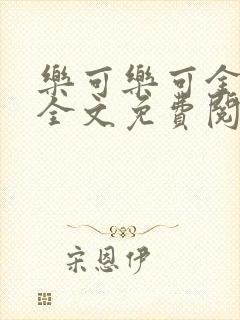 樂可樂可全
全文免費閱
宋恩伊